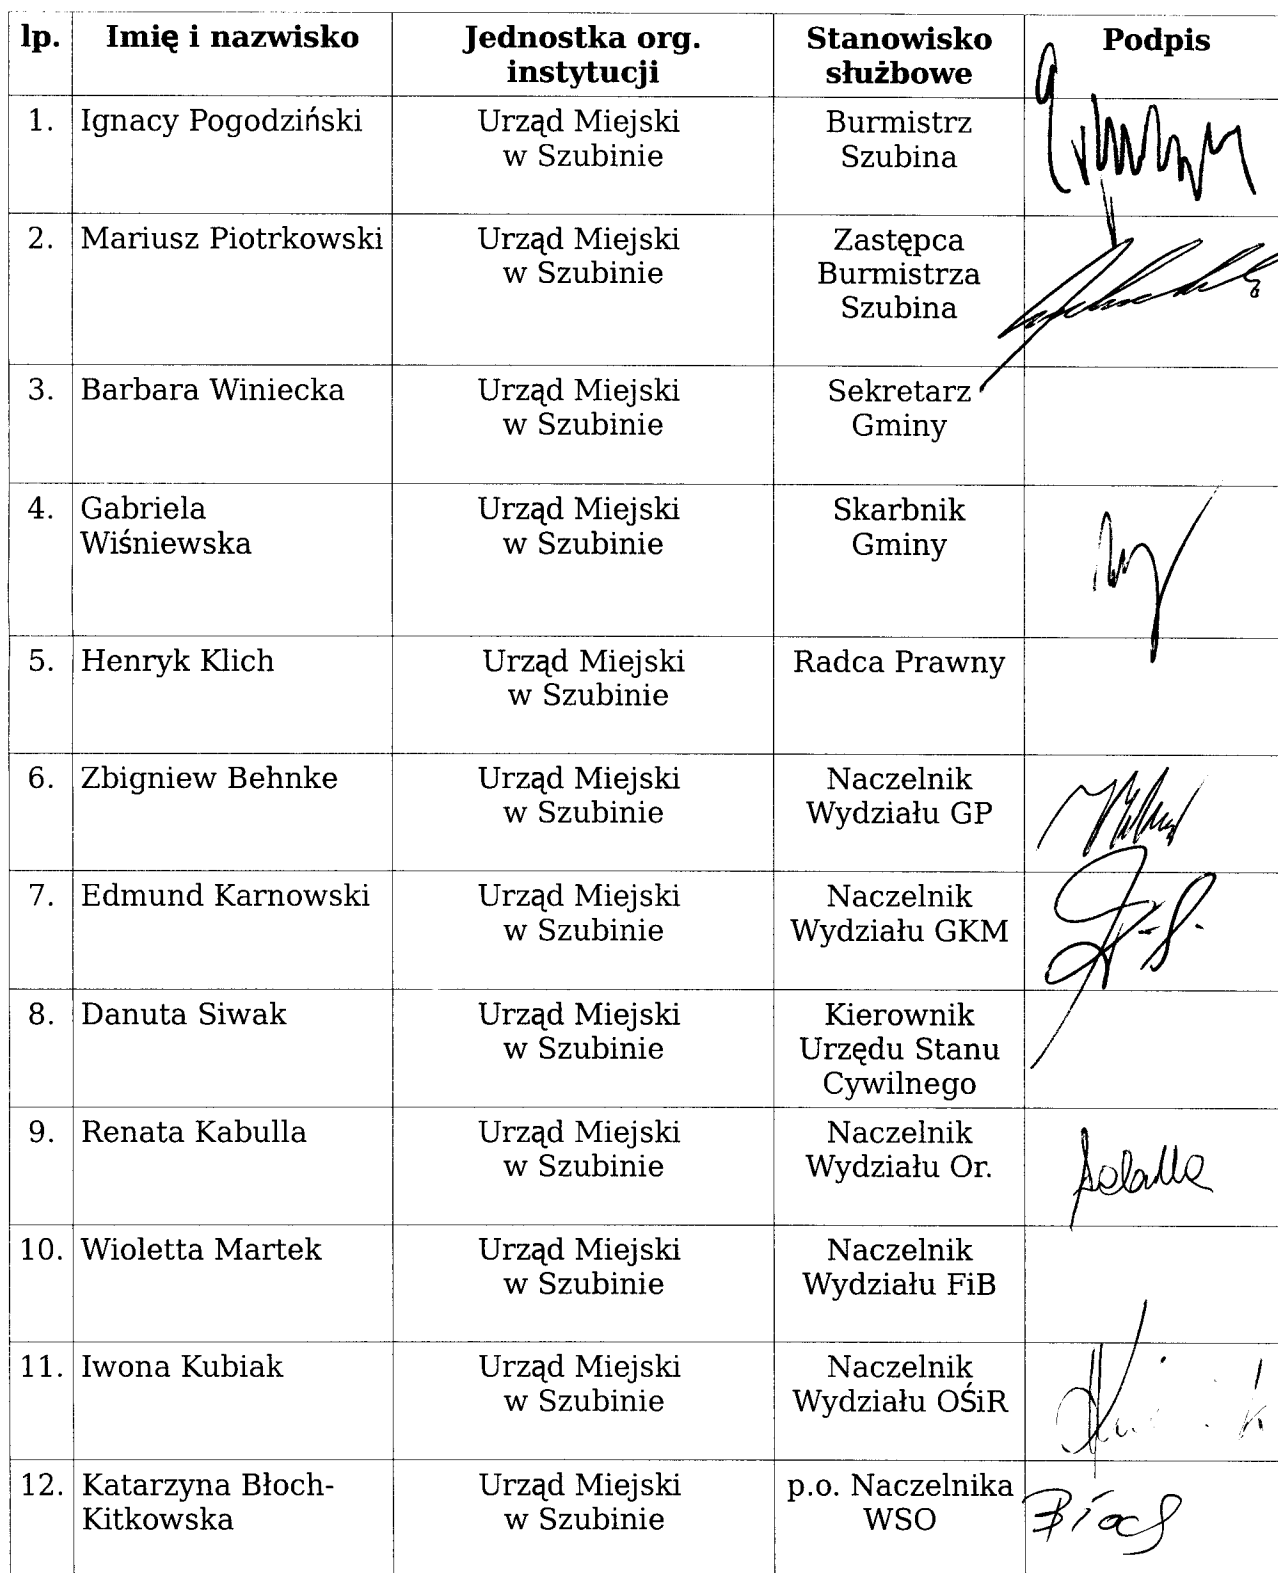 lp. Imię i nazwisko Jednostka org. instytucji Stanowisko służbowe Podpis
1. Ignacy Pogodziński Urząd Miejski w Szubinie Burmistrz Szubina
2. Mariusz Piotrkowski Urząd Miejski w Szubinie Zastępca Burmistrza Szubina
3. Barbara Winiecka Urząd Miejski w Szubinie Sekretarz Gminy
4. Gabriela Wiśniewska Urząd Miejski w Szubinie Skarbnik Gminy
5. Henryk Klich Urząd Miejski w Szubinie Radca Prawny
6. Zbigniew Behnke Urząd Miejski w Szubinie Naczelnik Wydziału GP
7. Edmund Karnowski Urząd Miejski w Szubinie Naczelnik Wydziału GKM
8. Danuta Siwak Urząd Miejski w Szubinie Kierownik Urzędu Stanu Cywilnego
9. Renata Kabulla Urząd Miejski w Szubinie Naczelnik Wydziału Or.
10. Wioletta Martek Urząd Miejski w Szubinie Naczelnik Wydziału FiB
11. Iwona Kubiak Urząd Miejski w Szubinie Naczelnik Wydziału OŚiR
12. Katarzyna Błoch-Kitkowska Urząd Miejski w Szubinie p.o. Naczelnika WSO Błoch